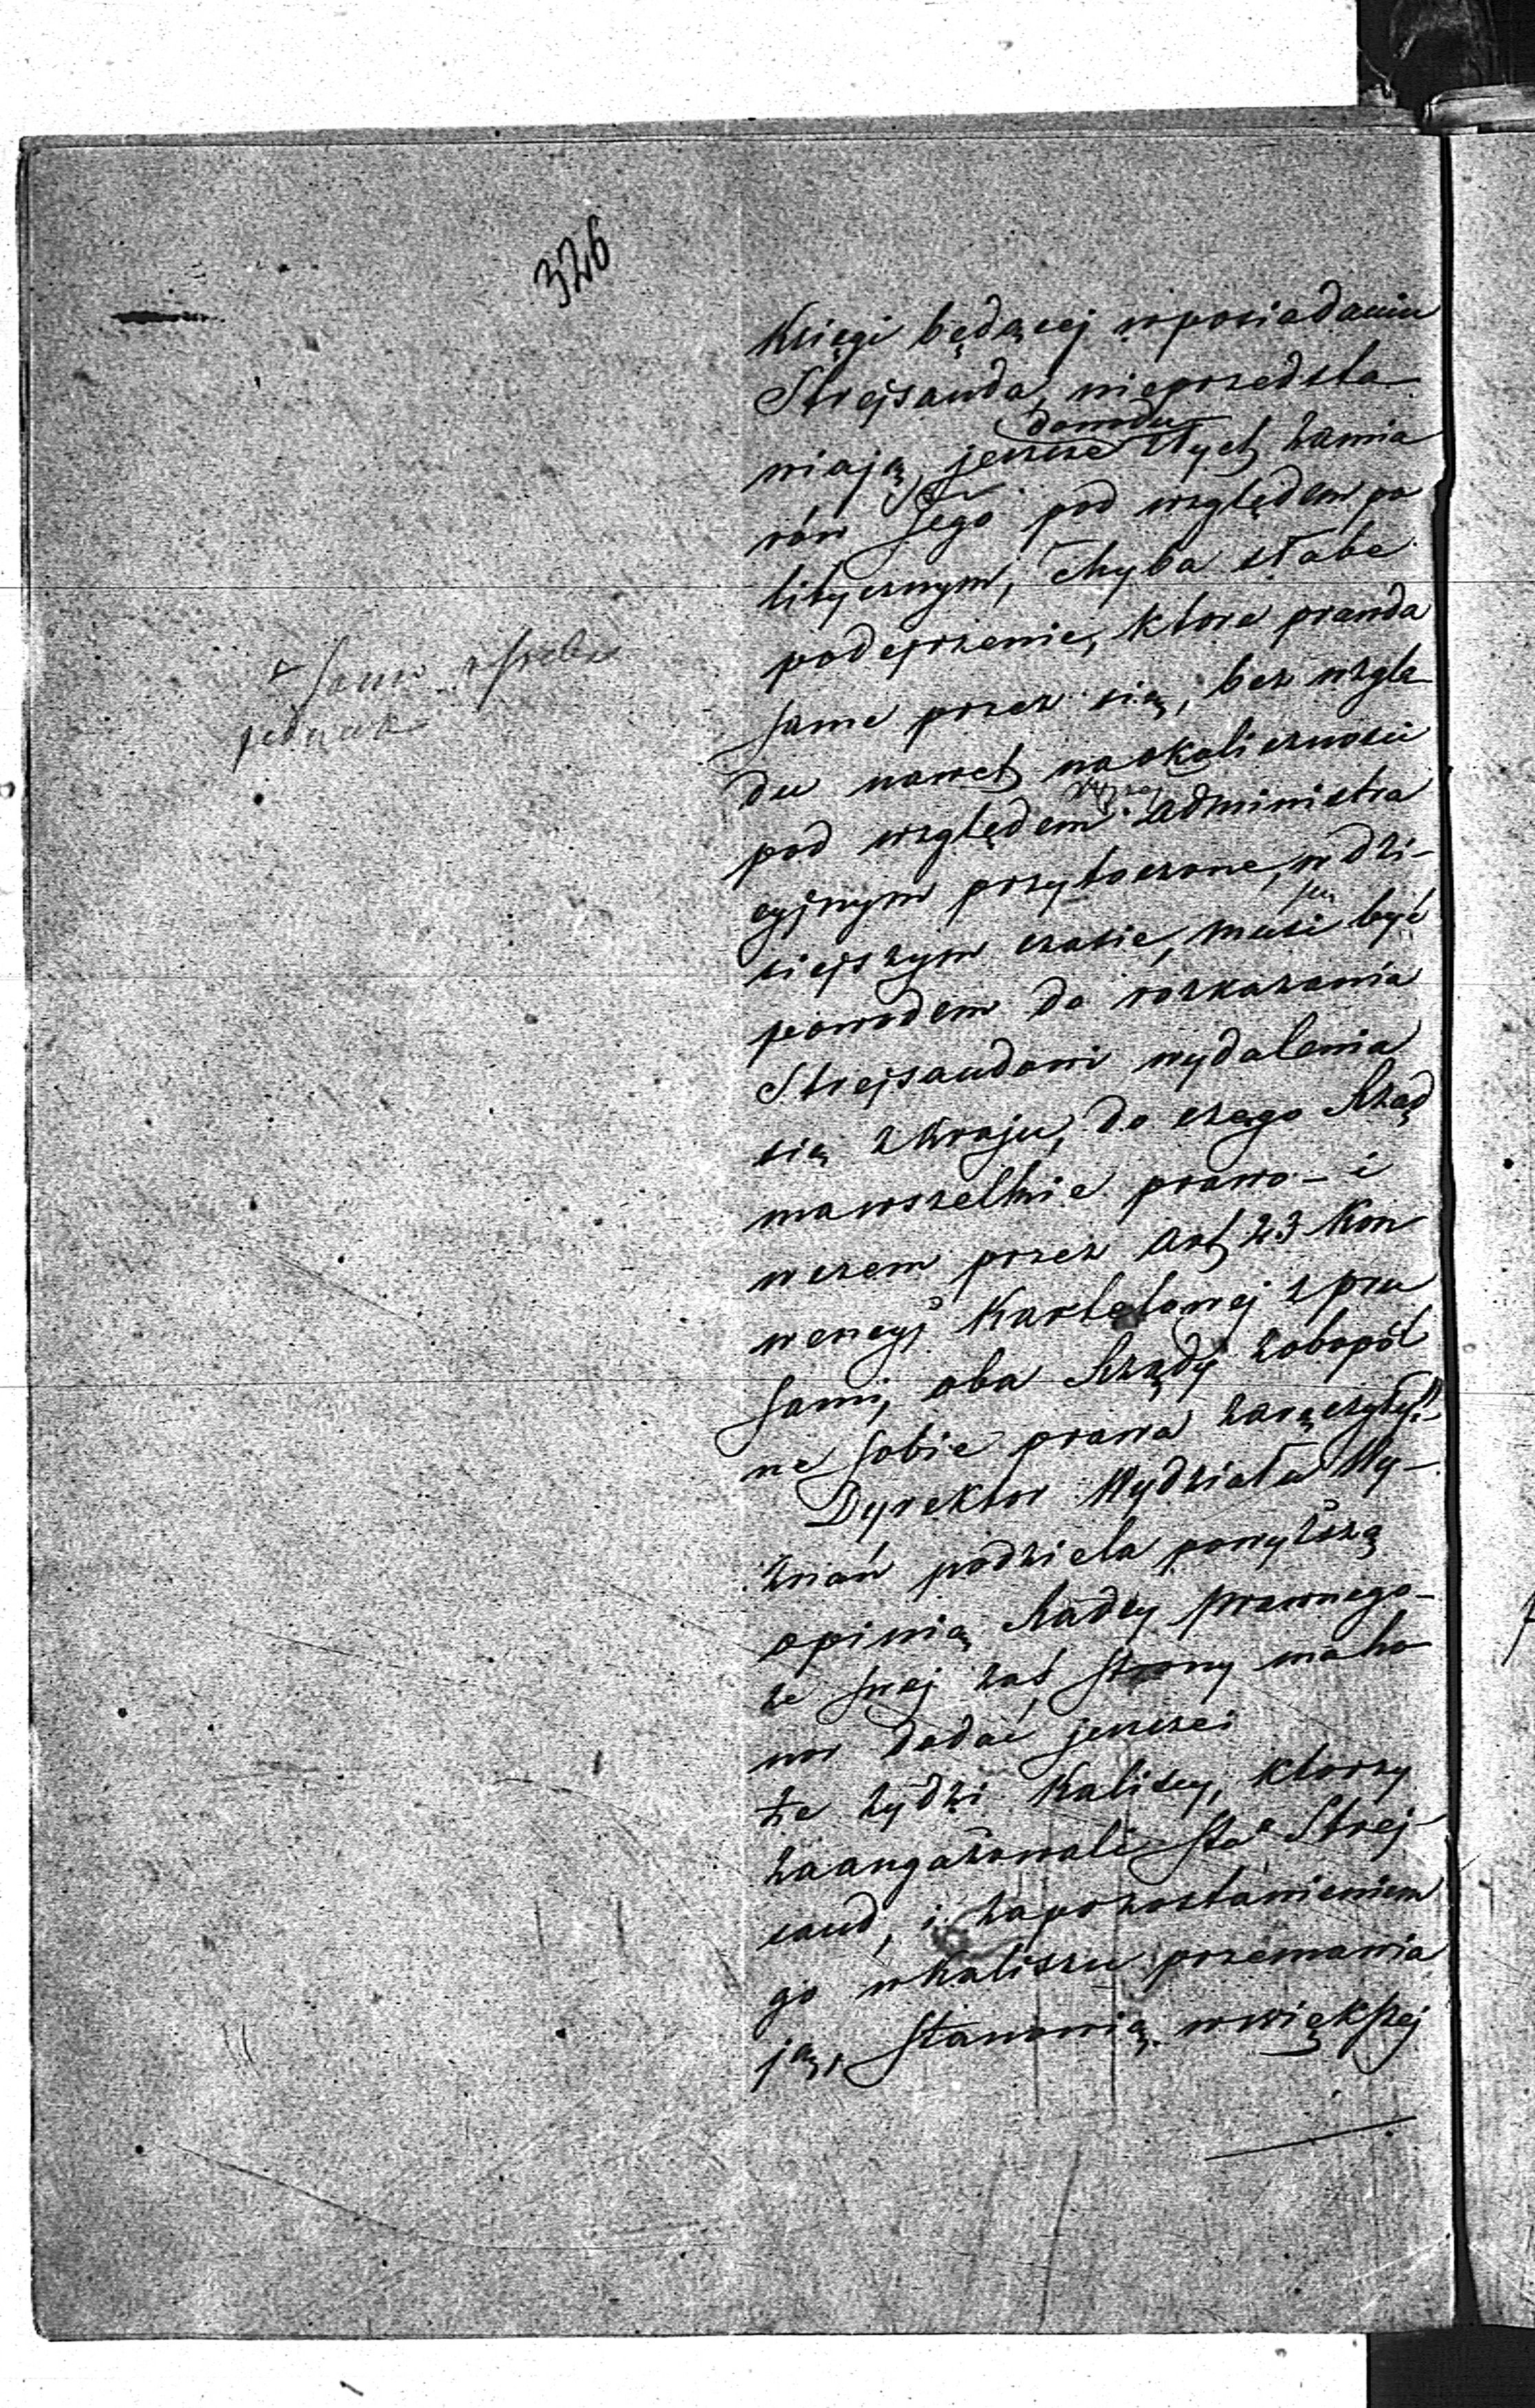 326
Księgi będącej wposiadaniu
Strejsanda, nieprzedsta-
dowodu
wiają jeszcze złych zamia
rów Jego pod względem po
litycznym, chyba słabe
podejrzenie, które prawda
same przez się, bez wzglę-
du nawet na okoliczności
pod względem administra
cyjnym przytoczone, w dzi-
siejszym czasie, musi być
powodem do rozkazania
Strejsandowi wydalenia
się z Kraju, do czego Rząd
ma wszelkie prawo - i
w czem przez Art 23 Kon
wencyi Kartelowej z pru
sami, oba Rządy zobopól
ne sobie prawa zaręczyły."
Dyrektor Wydziału Wy-
znań podziela powyższą
opinią Radcy prawnego -
ze swej zaś strony ma ho
nor dodać jeszcze:
że żydzi Kaliscy, którzy
zaangażowali Sta° Strej-
sand, i zapozostawieniem
go w Kaliszu przemawia
ją, stanowią w większej
jednak